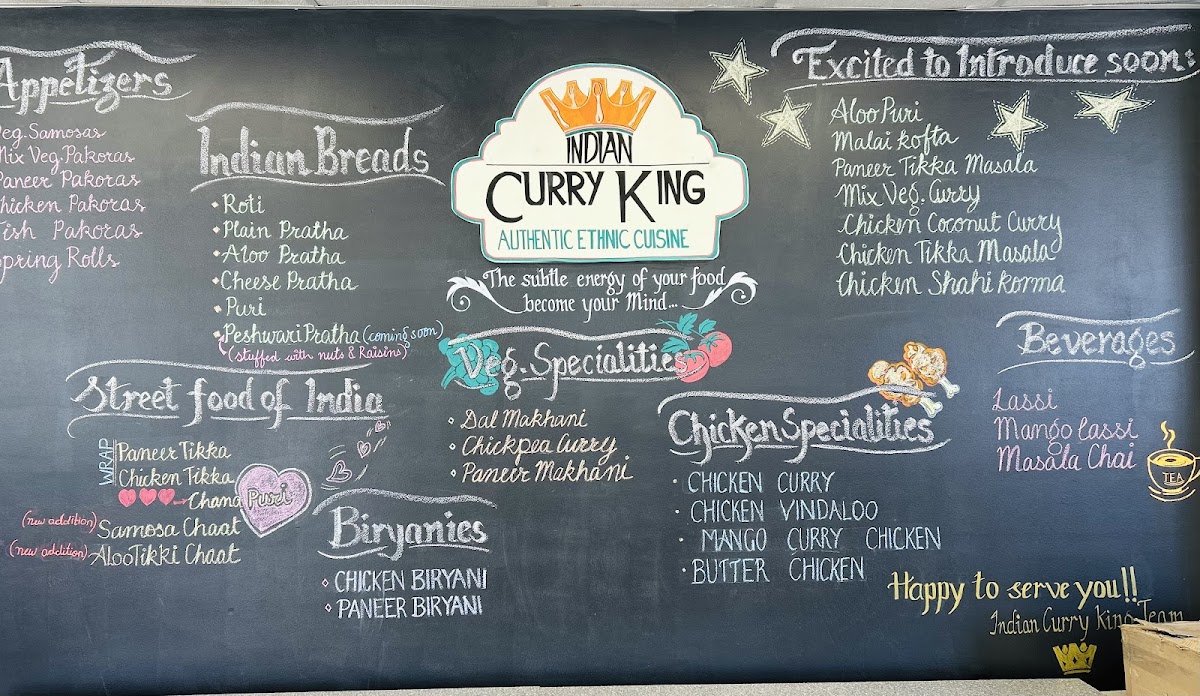 Appetizers
Veg. Samosas
Mix Veg. Pakoras
Paneer Pakoras
Chicken Pakoras
Fish Pakoras
Spring Rolls
Indian Breads
Roti
Plain Pratha
Aloo Pratha
Cheese Pratha
Puri
Peshwari Pratha (coming soon)
(stuffed with nuts & Raisins)
Street food of India
WRAP
Paneer Tikka
Chicken Tikka
Chana Puri
(new addition) Samosa Chaat
(new addition) Aloo Tikki Chaat
INDIAN
CURRY KING
AUTHENTIC ETHNIC CUISINE
The subtle energy of your food
become your Mind...
Veg. Specialities
Dal Makhani
Chickpea Curry
Paneer Makhani
Biryanies
CHICKEN BIRYANI
PANEER BIRYANI
Excited to Introduce soon:
Aloo Puri
Malai kofta
Paneer Tikka Masala
Mix Veg. Curry
Chicken Coconut Curry
Chicken Tikka Masala
Chicken Shahi korma
Chicken Specialities
CHICKEN CURRY
CHICKEN VINDALOO
MANGO CURRY CHICKEN
BUTTER CHICKEN
Beverages
Lassi
Mango lassi
Masala Chai
TEA
Happy to serve you!!
Indian Curry King Team